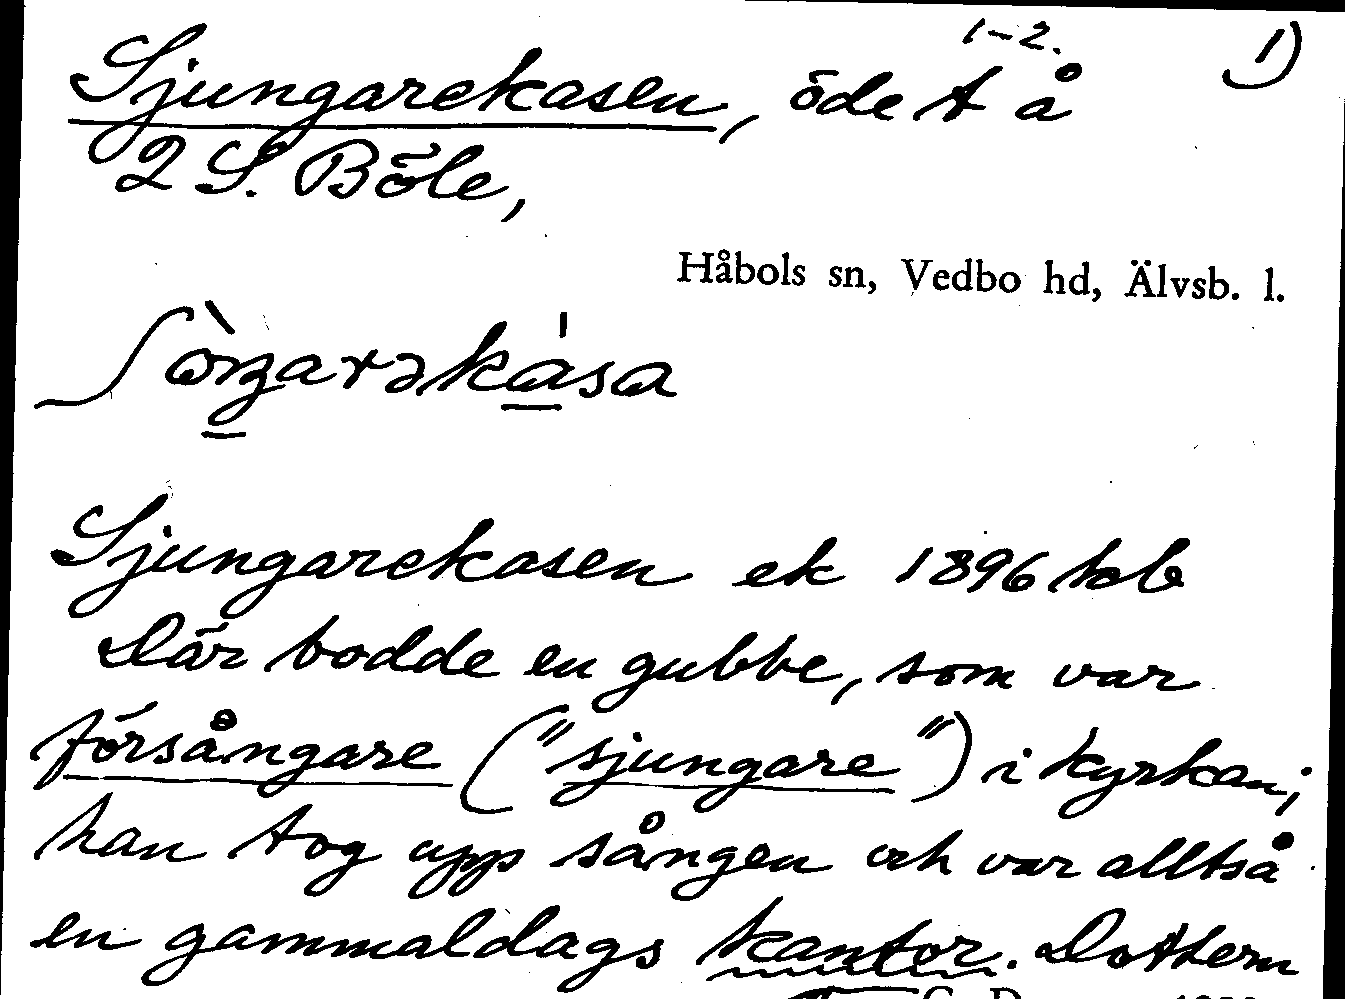 1-2. 1)
Sjungarekasen, öde t å
2 S. Böle,
Håbols sn, Vedbo hd, Älvsb. l.
Sjungarekasen ek 1896
Där bodde en gubbe, som var
försångare ("sjungare") i kyrkan;
han tog upp sången och var alltså
en gammaldags kantor. Dottern